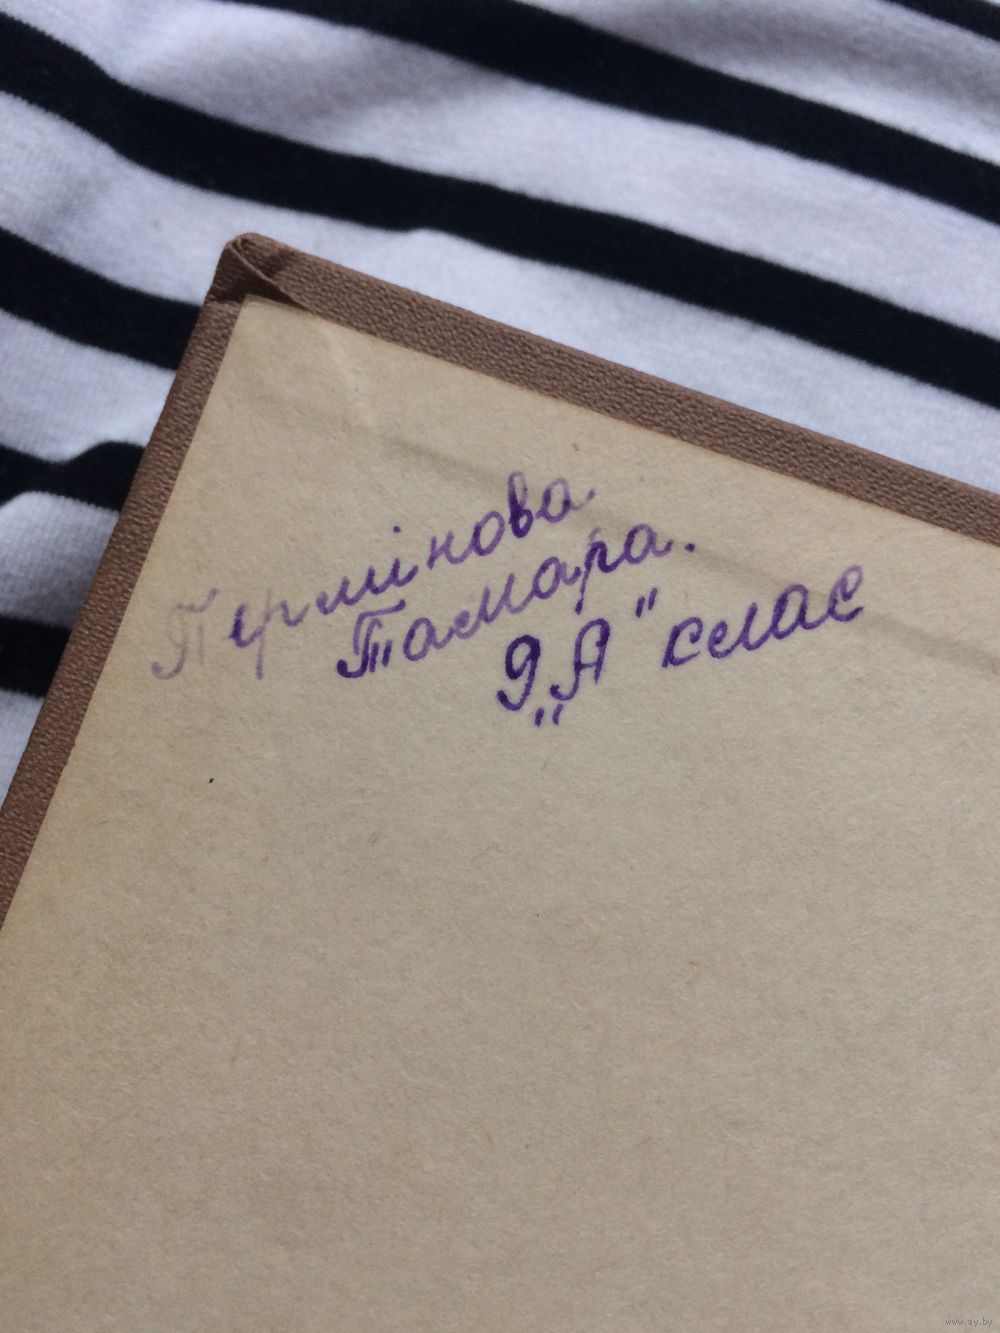 Пермінова
Тамара.
9 „А" клас
www.ay.by